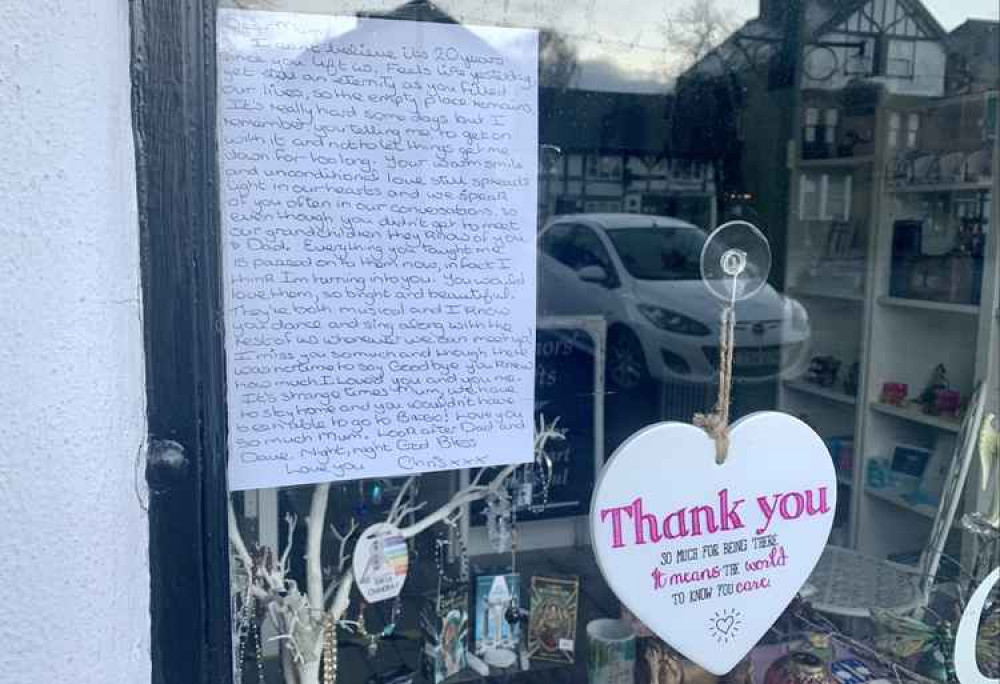 Dear Mum,
I can't believe its 20 years
since you left us, Feels like yesterday
yet still an eternity as you filled
our lives, so the empty place remains
It's really hard some days but I
remember you telling me to get on
with it and not to let things get me
down for too long. Your warm smile
and unconditional love still spreads
light in our hearts and we speak
of you often in our conversations, so
even though you didn't get to meet
our grandchildren they know of you
& Dad. Everything you taught me
is passed on to them now, in fact I
think I'm turning into you. You would
love them, so bright and beautiful.
They're both musical and I know
you dance and sing along with the
rest of us whenever we can meet up!
I miss you so much and though there
was no time to say Goodbye you knew
how much I loved you and you me.
It's strange times Mum, we have
to stay home and you wouldn't have
been able to go to Bingo! Love you
so much Mum. Look after Dad and
Dave. Night, night God Bless
Love you Chris xxx
Thank you
SO MUCH FOR BEING THERE
It means THE world
TO KNOW YOU care